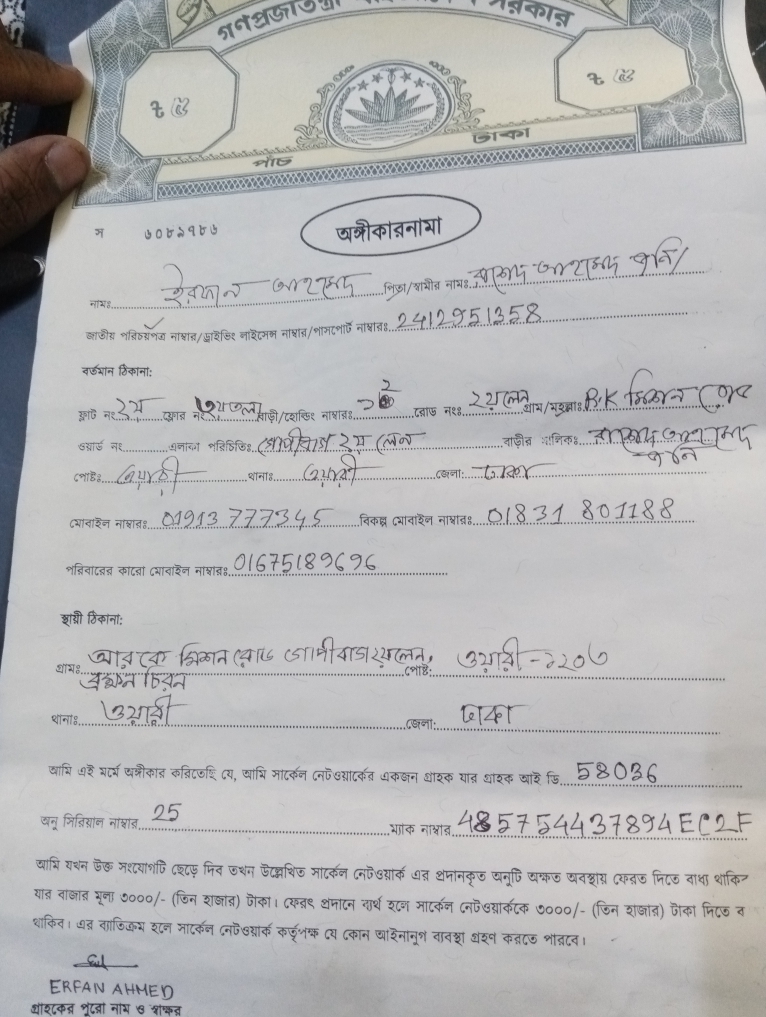 গণপ্রজাতন্ত্রী বাংলাদেশ সরকার
৳ ৫ ৳ ৫
পাঁচ টাকা
স ৬০৮৯৭৮৬ অঙ্গীকারনামা
নামঃ ইরফান আহমেদ পিতা/স্বামীর নামঃ আহমেদ
জাতীয় পরিচয়পত্র নাম্বার/ড্রাইভিং লাইসেন্স নাম্বার/পাসপোর্ট নাম্বারঃ 2412951358
বর্তমান ঠিকানা:
ফ্লাট নং ২য় ফ্লোর নং ৩য়তলা বাড়ী/হোল্ডিং নাম্বারঃ রোড নংঃ ২য়লেন গ্রাম/মহল্লাঃ B.K মিশন রোড
ওয়ার্ড নং এলাকা পরিচিতিঃ গোপীবাগ ২য় লেন বাড়ীর মালিকঃ আহমেদ
পোষ্টঃ ওয়ারী থানাঃ ওয়ারী জেলা: ঢাকা
মোবাইল নাম্বারঃ 01913 777345 বিকল্প মোবাইল নাম্বারঃ 01831 801188
পরিবারের কারো মোবাইল নাম্বারঃ 01675189696
স্থায়ী ঠিকানা:
গ্রামঃ আর কে মিশন রোড গোপীবাগ ২য়লেন, পোষ্ট: ওয়ারী -১২০৩
থানাঃ ওয়ারী জেলা: ঢাকা
আমি এই মর্মে অঙ্গীকার করিতেছি যে, আমি সার্কেল নেটওয়ার্কের একজন গ্রাহক যার গ্রাহক আই ডি 58036
অনু সিরিয়াল নাম্বার 25 ম্যাক নাম্বার 485754437894EC2F
আমি যখন উক্ত সংযোগটি ছেড়ে দিব তখন উল্লেখিত সার্কেল নেটওয়ার্ক এর প্রদানকৃত অনুটি অক্ষত অবস্থায় ফেরত দিতে বাধ্য থাকি
যার বাজার মূল্য ৩০০০/- (তিন হাজার) টাকা। ফেরৎ প্রদানে ব্যর্থ হলে সার্কেল নেটওয়ার্ককে ৩০০০/- (তিন হাজার) টাকা দিতে ব
থাকিব। এর ব্যতিক্রম হলে সার্কেল নেটওয়ার্ক কর্তৃপক্ষ যে কোন আইনানুগ ব্যবস্থা গ্রহণ করতে পারবে।
ERFAN AHMED
গ্রাহকের পুরো নাম ও স্বাক্ষর